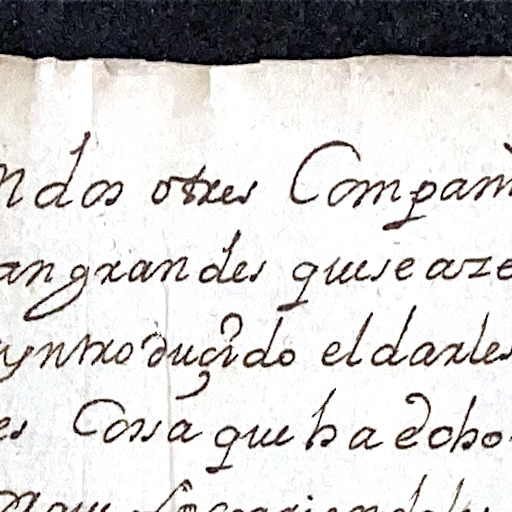 n dos otres Compañi
angrandes quese aze
yntroduçido el darles
es Cossa que ha echo